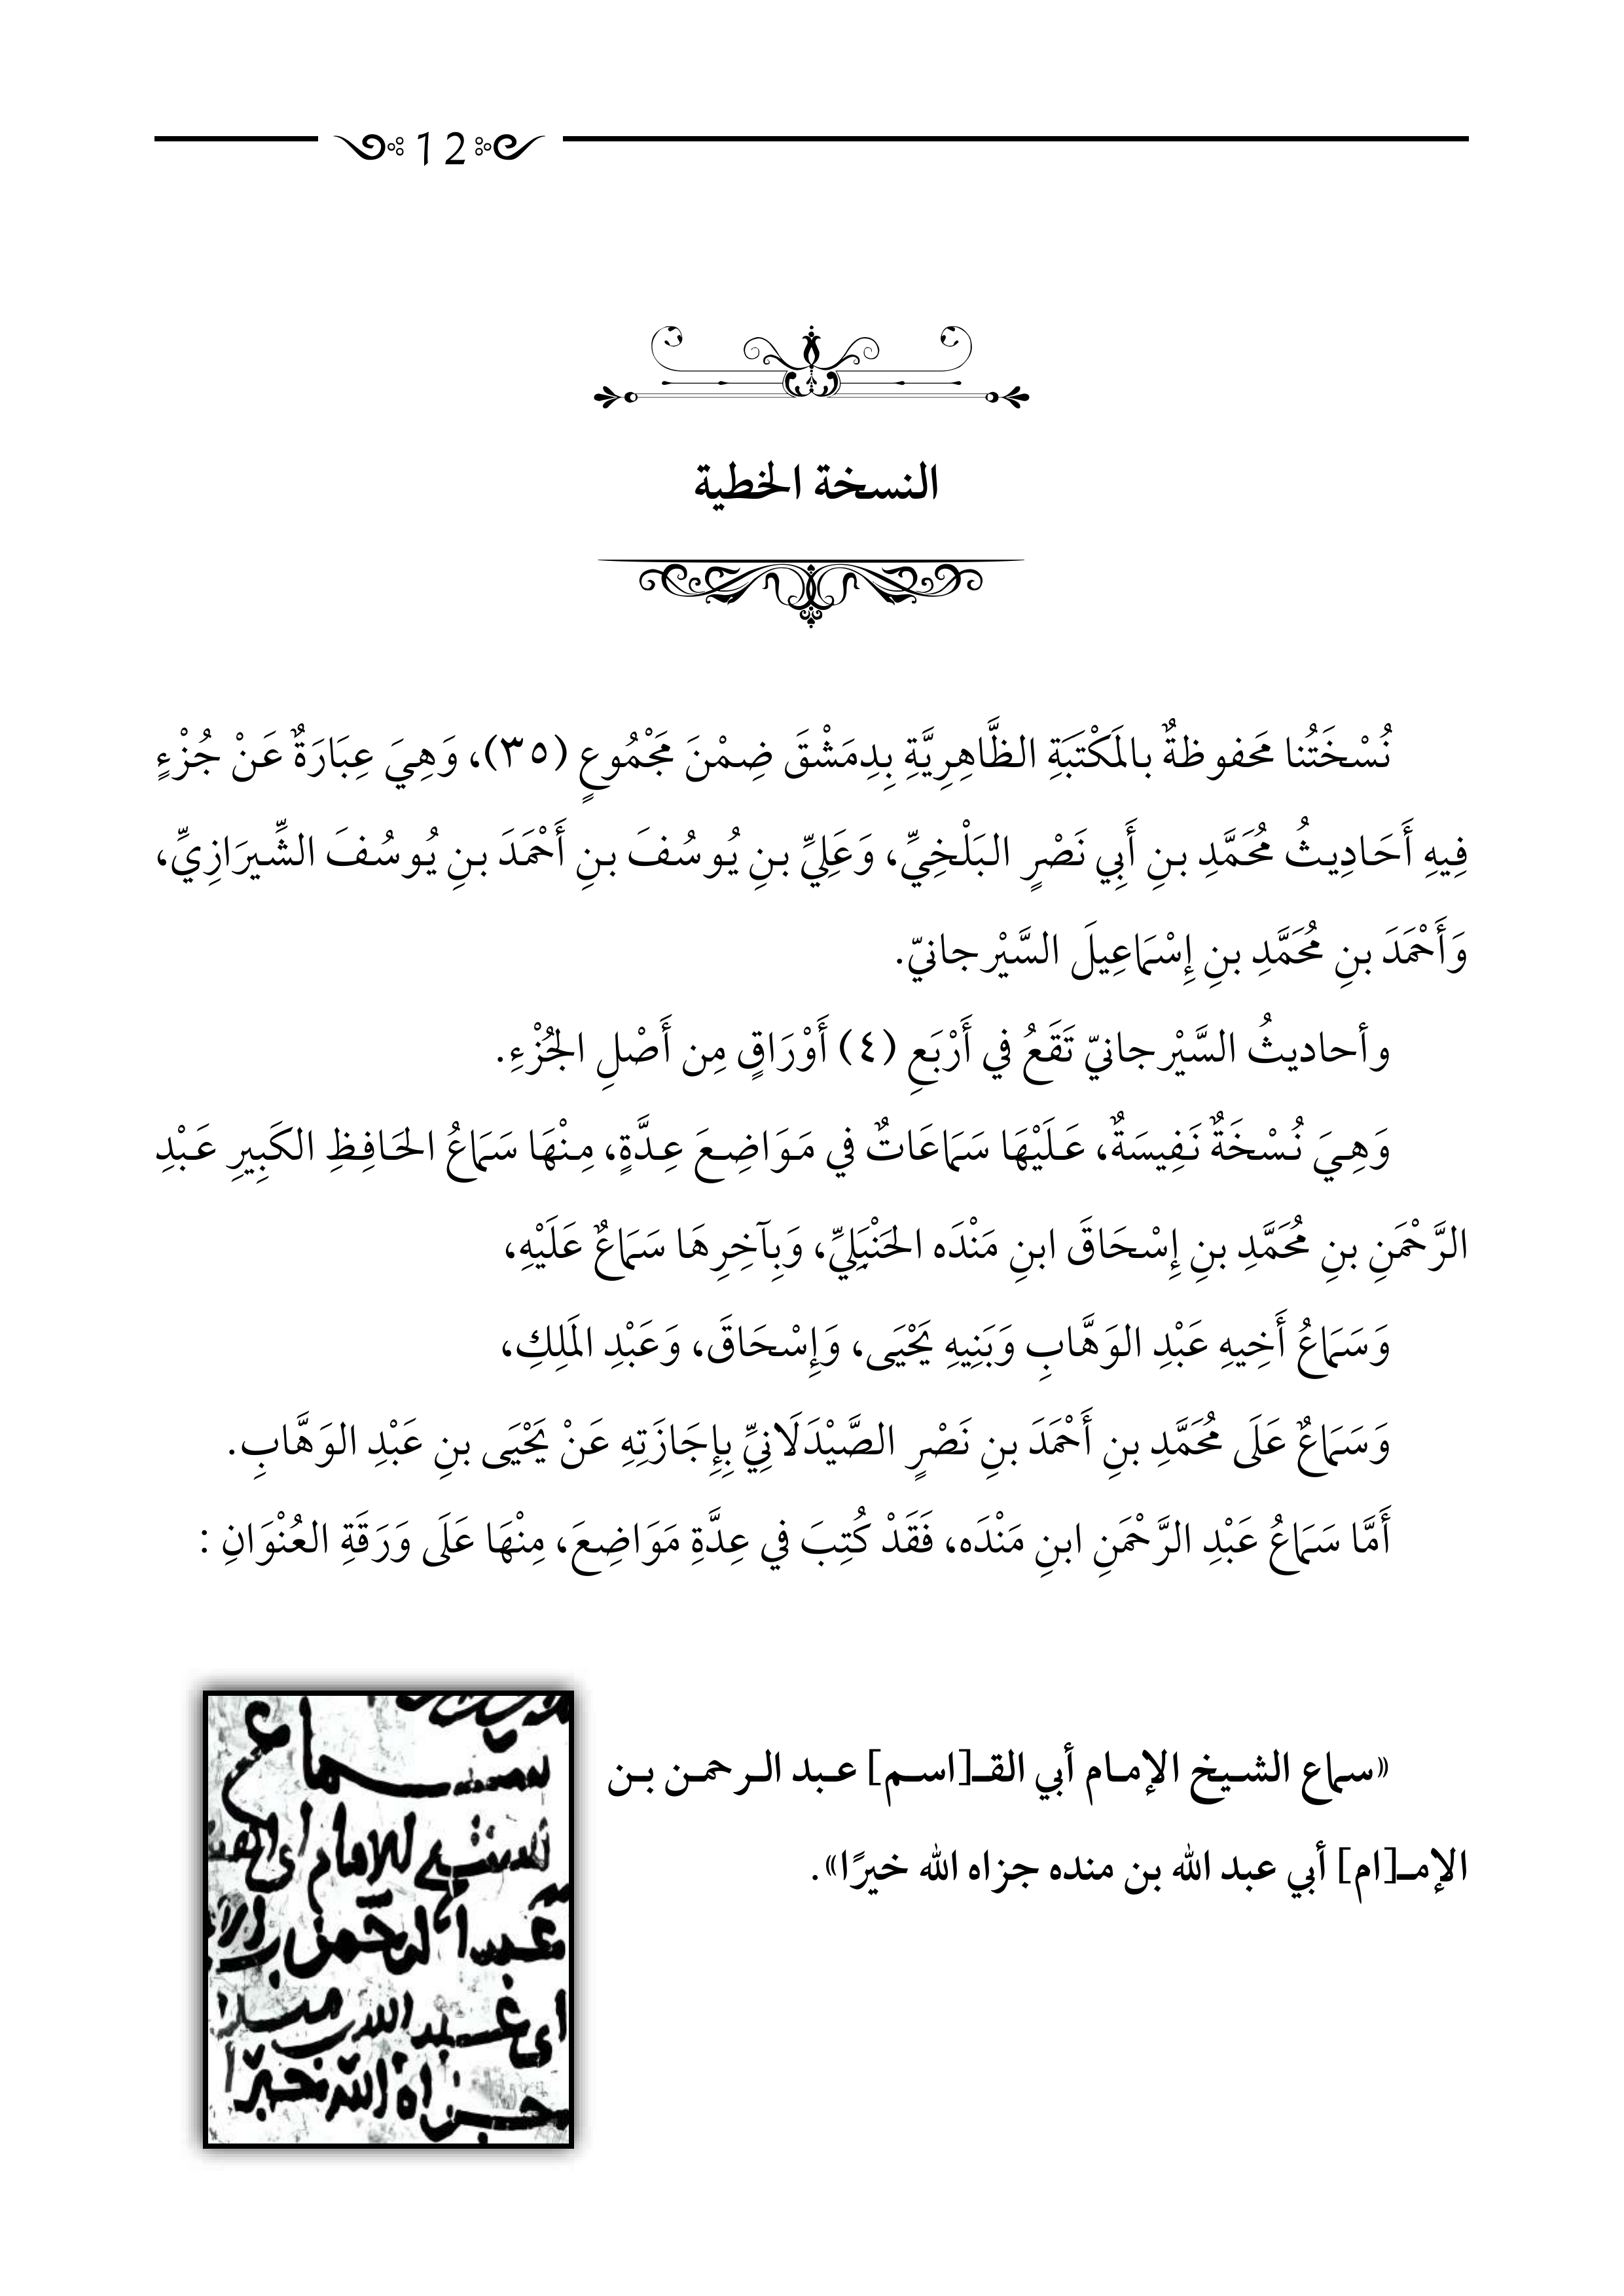 12
النسخة الخطية
نُسْخَتُنا مَحَفوظةٌ بالمَكْتَبَةِ الظَّاهِرِيَّةِ بِدِمَشْقَ ضِمْنَ مَجْمُوعٍ (٣٥)، وَهِيَ عِبَارَةٌ عَنْ جُزْءٍ
فِيهِ أَحَادِيثُ مُحَمَّدِ بنِ أَبِي نَصْرٍ البَلْخِيِّ، وَعَلِيِّ بنِ يُوسُفَ بنِ أَحْمَدَ بنِ يُوسُفَ الشِّيرَازِيِّ،
وَأَحْمَدَ بنِ مُحَمَّدِ بنِ إِسْمَاعِيلَ السَّيْرجانيّ.
وأحاديثُ السَّيْرجانيّ تَقَعُ في أَرْبَعِ (٤) أَوْرَاقٍ مِن أَصْلِ الجُزْءِ.
وَهِيَ نُسْخَةٌ نَفِيسَةٌ، عَلَيْهَا سَمَاعَاتٌ في مَوَاضِعَ عِدَّةٍ، مِنْهَا سَمَاعُ الحَافِظِ الكَبِيرِ عَبْدِ
الرَّحْمَنِ بنِ مُحَمَّدِ بنِ إِسْحَاقَ ابنِ مَنْدَه الحَنْبَلِيِّ، وَبِآخِرِهَا سَمَاعٌ عَلَيْهِ،
وَسَمَاعُ أَخِيهِ عَبْدِ الوَهَّابِ وَبَنِيهِ يَحْيَى، وَإِسْحَاقَ، وَعَبْدِ المَلِكِ،
وَسَمَاعٌ عَلَى مُحَمَّدِ بنِ أَحْمَدَ بنِ نَصْرٍ الصَّيْدَلَانِيِّ بِإِجَازَتِهِ عَنْ يَحْيَى بنِ عَبْدِ الوَهَّابِ.
أَمَّا سَمَاعُ عَبْدِ الرَّحْمَنِ ابنِ مَنْدَه، فَقَدْ كُتِبَ في عِدَّةِ مَوَاضِعَ، مِنْهَا عَلَى وَرَقَةِ العُنْوَانِ :
«سماع الشيخ الإمام أبي القـ[اسم] عبد الرحمن بن
الإمـ[ام] أبي عبد الله بن منده جزاه الله خيرًا».
سماع
الشيخ الامام ابى القا
عبد الرحمن بن الا
ابى عبد الله بن منده
جزاه الله خيرا